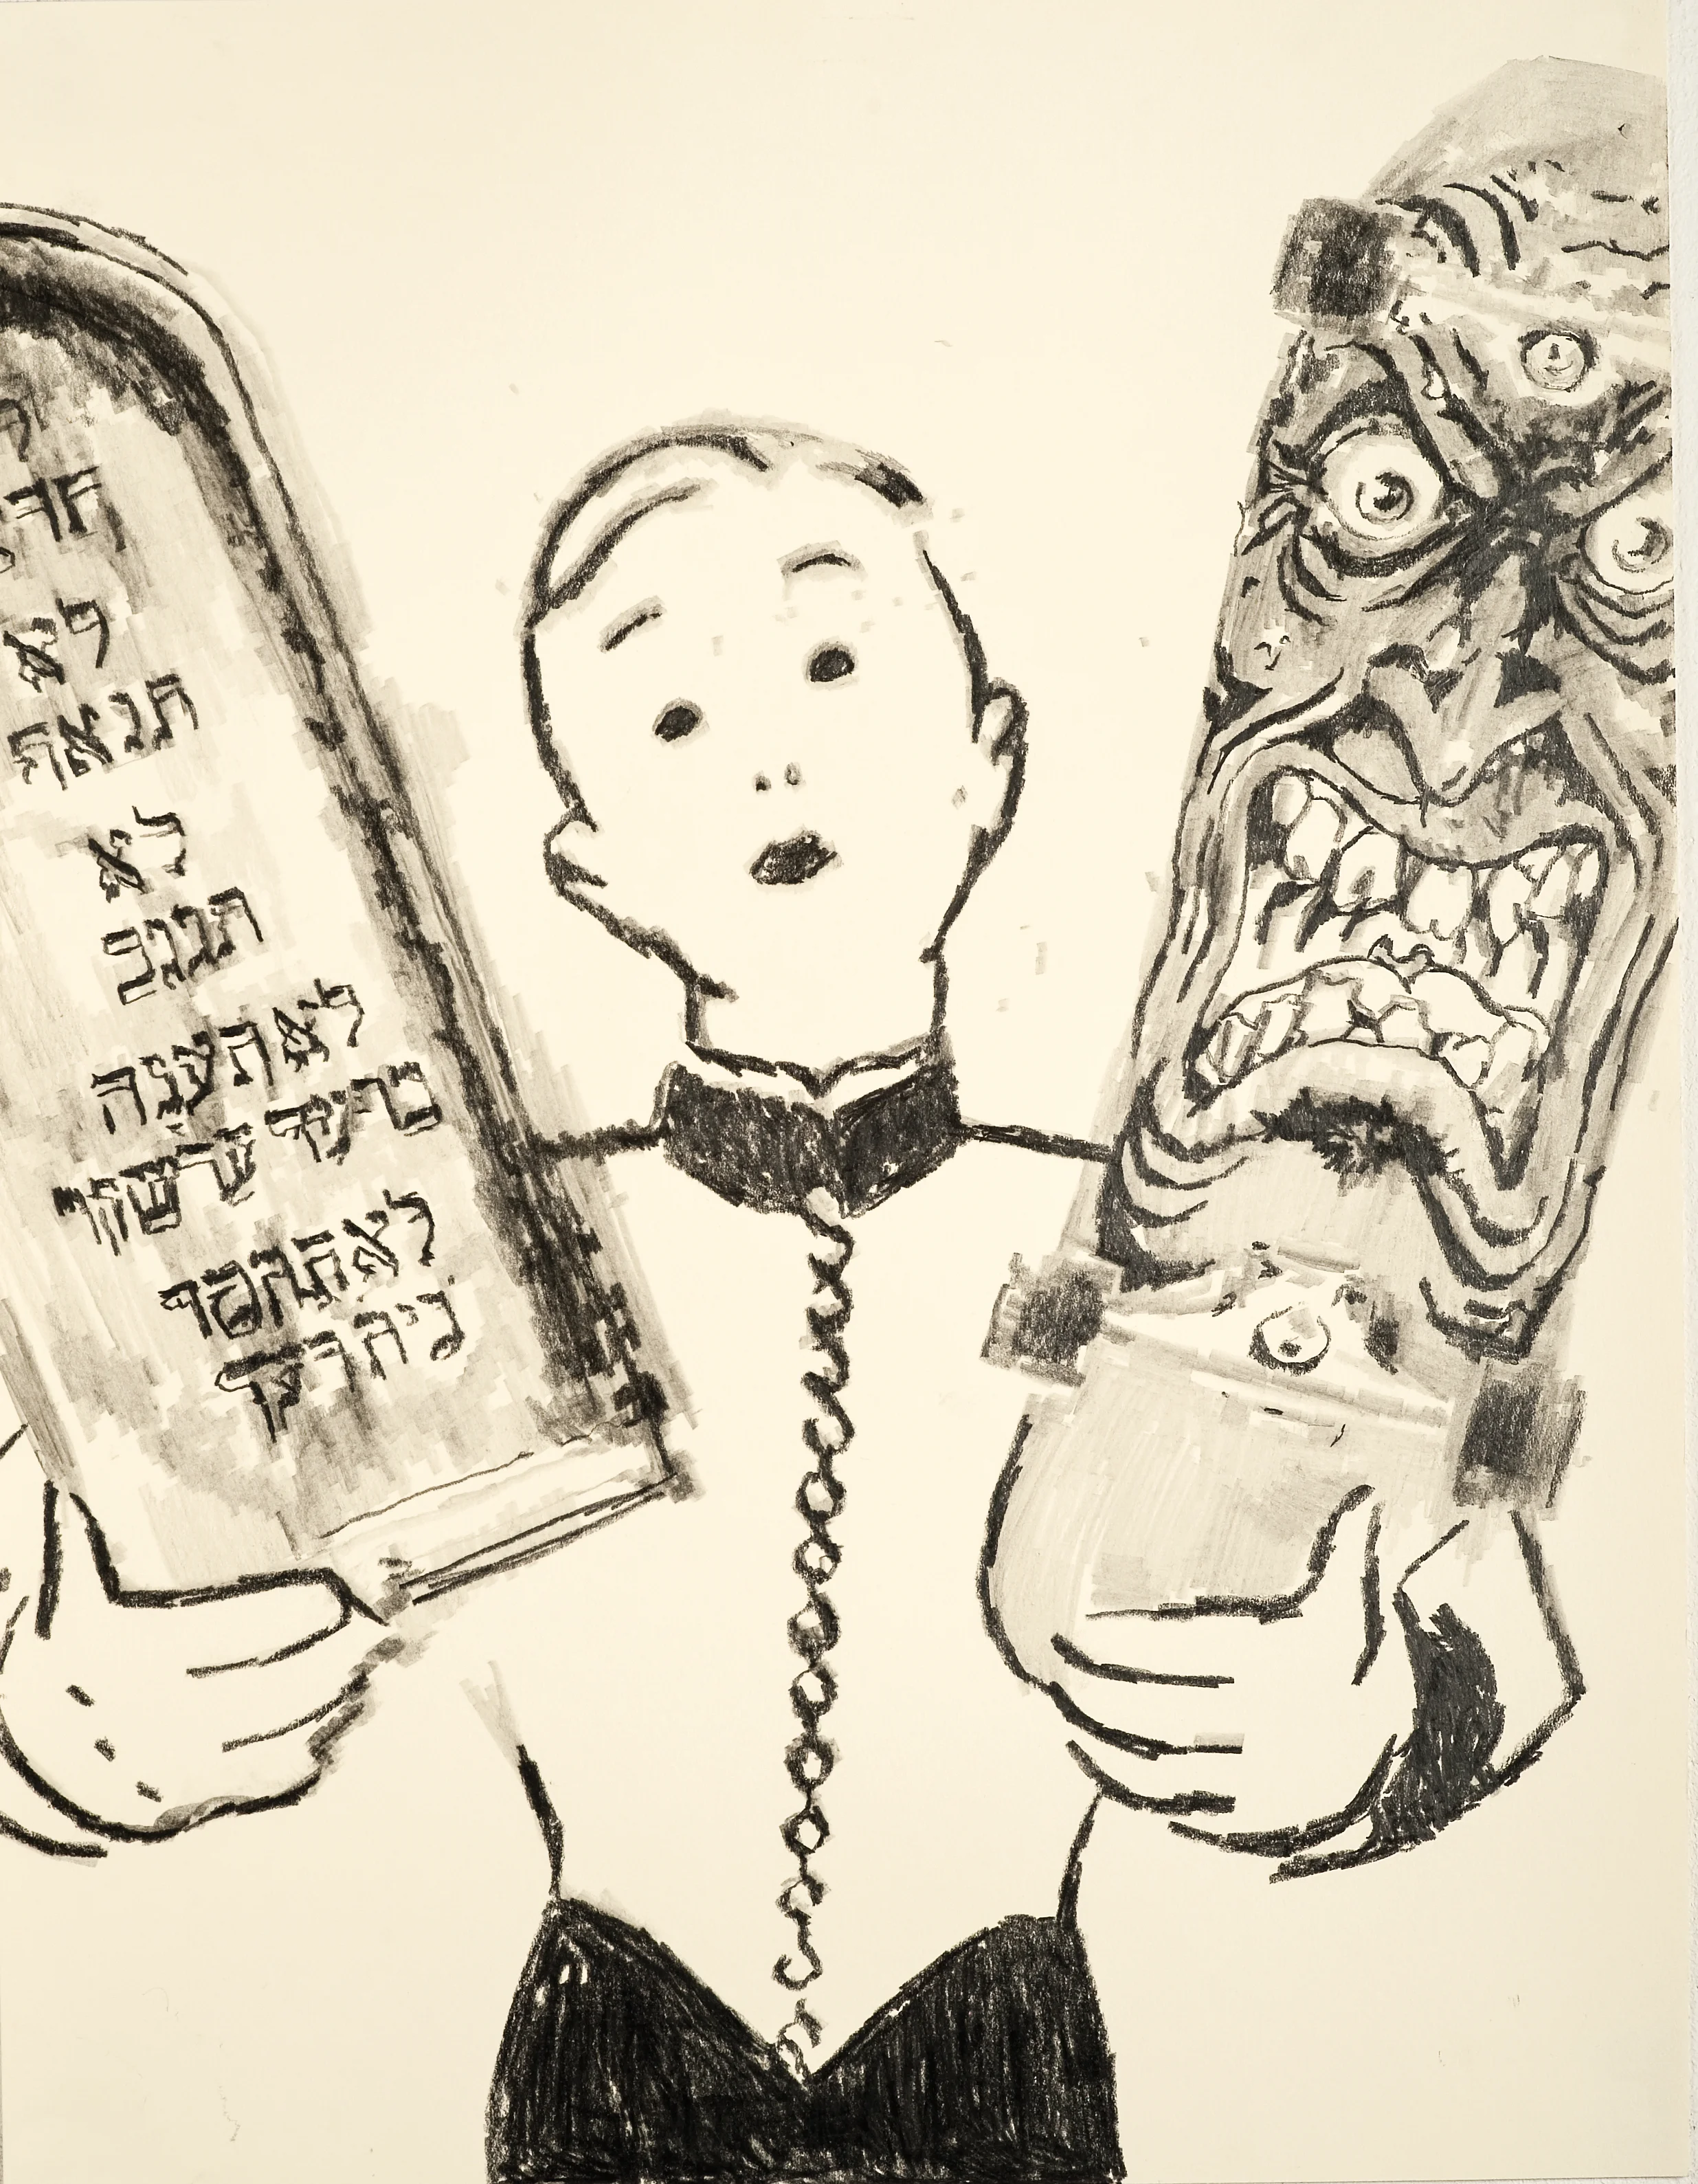 לא
תנאף
לא
תגנב
לא תענה
ברעך עד שקר
לא תחמד
בית רעך